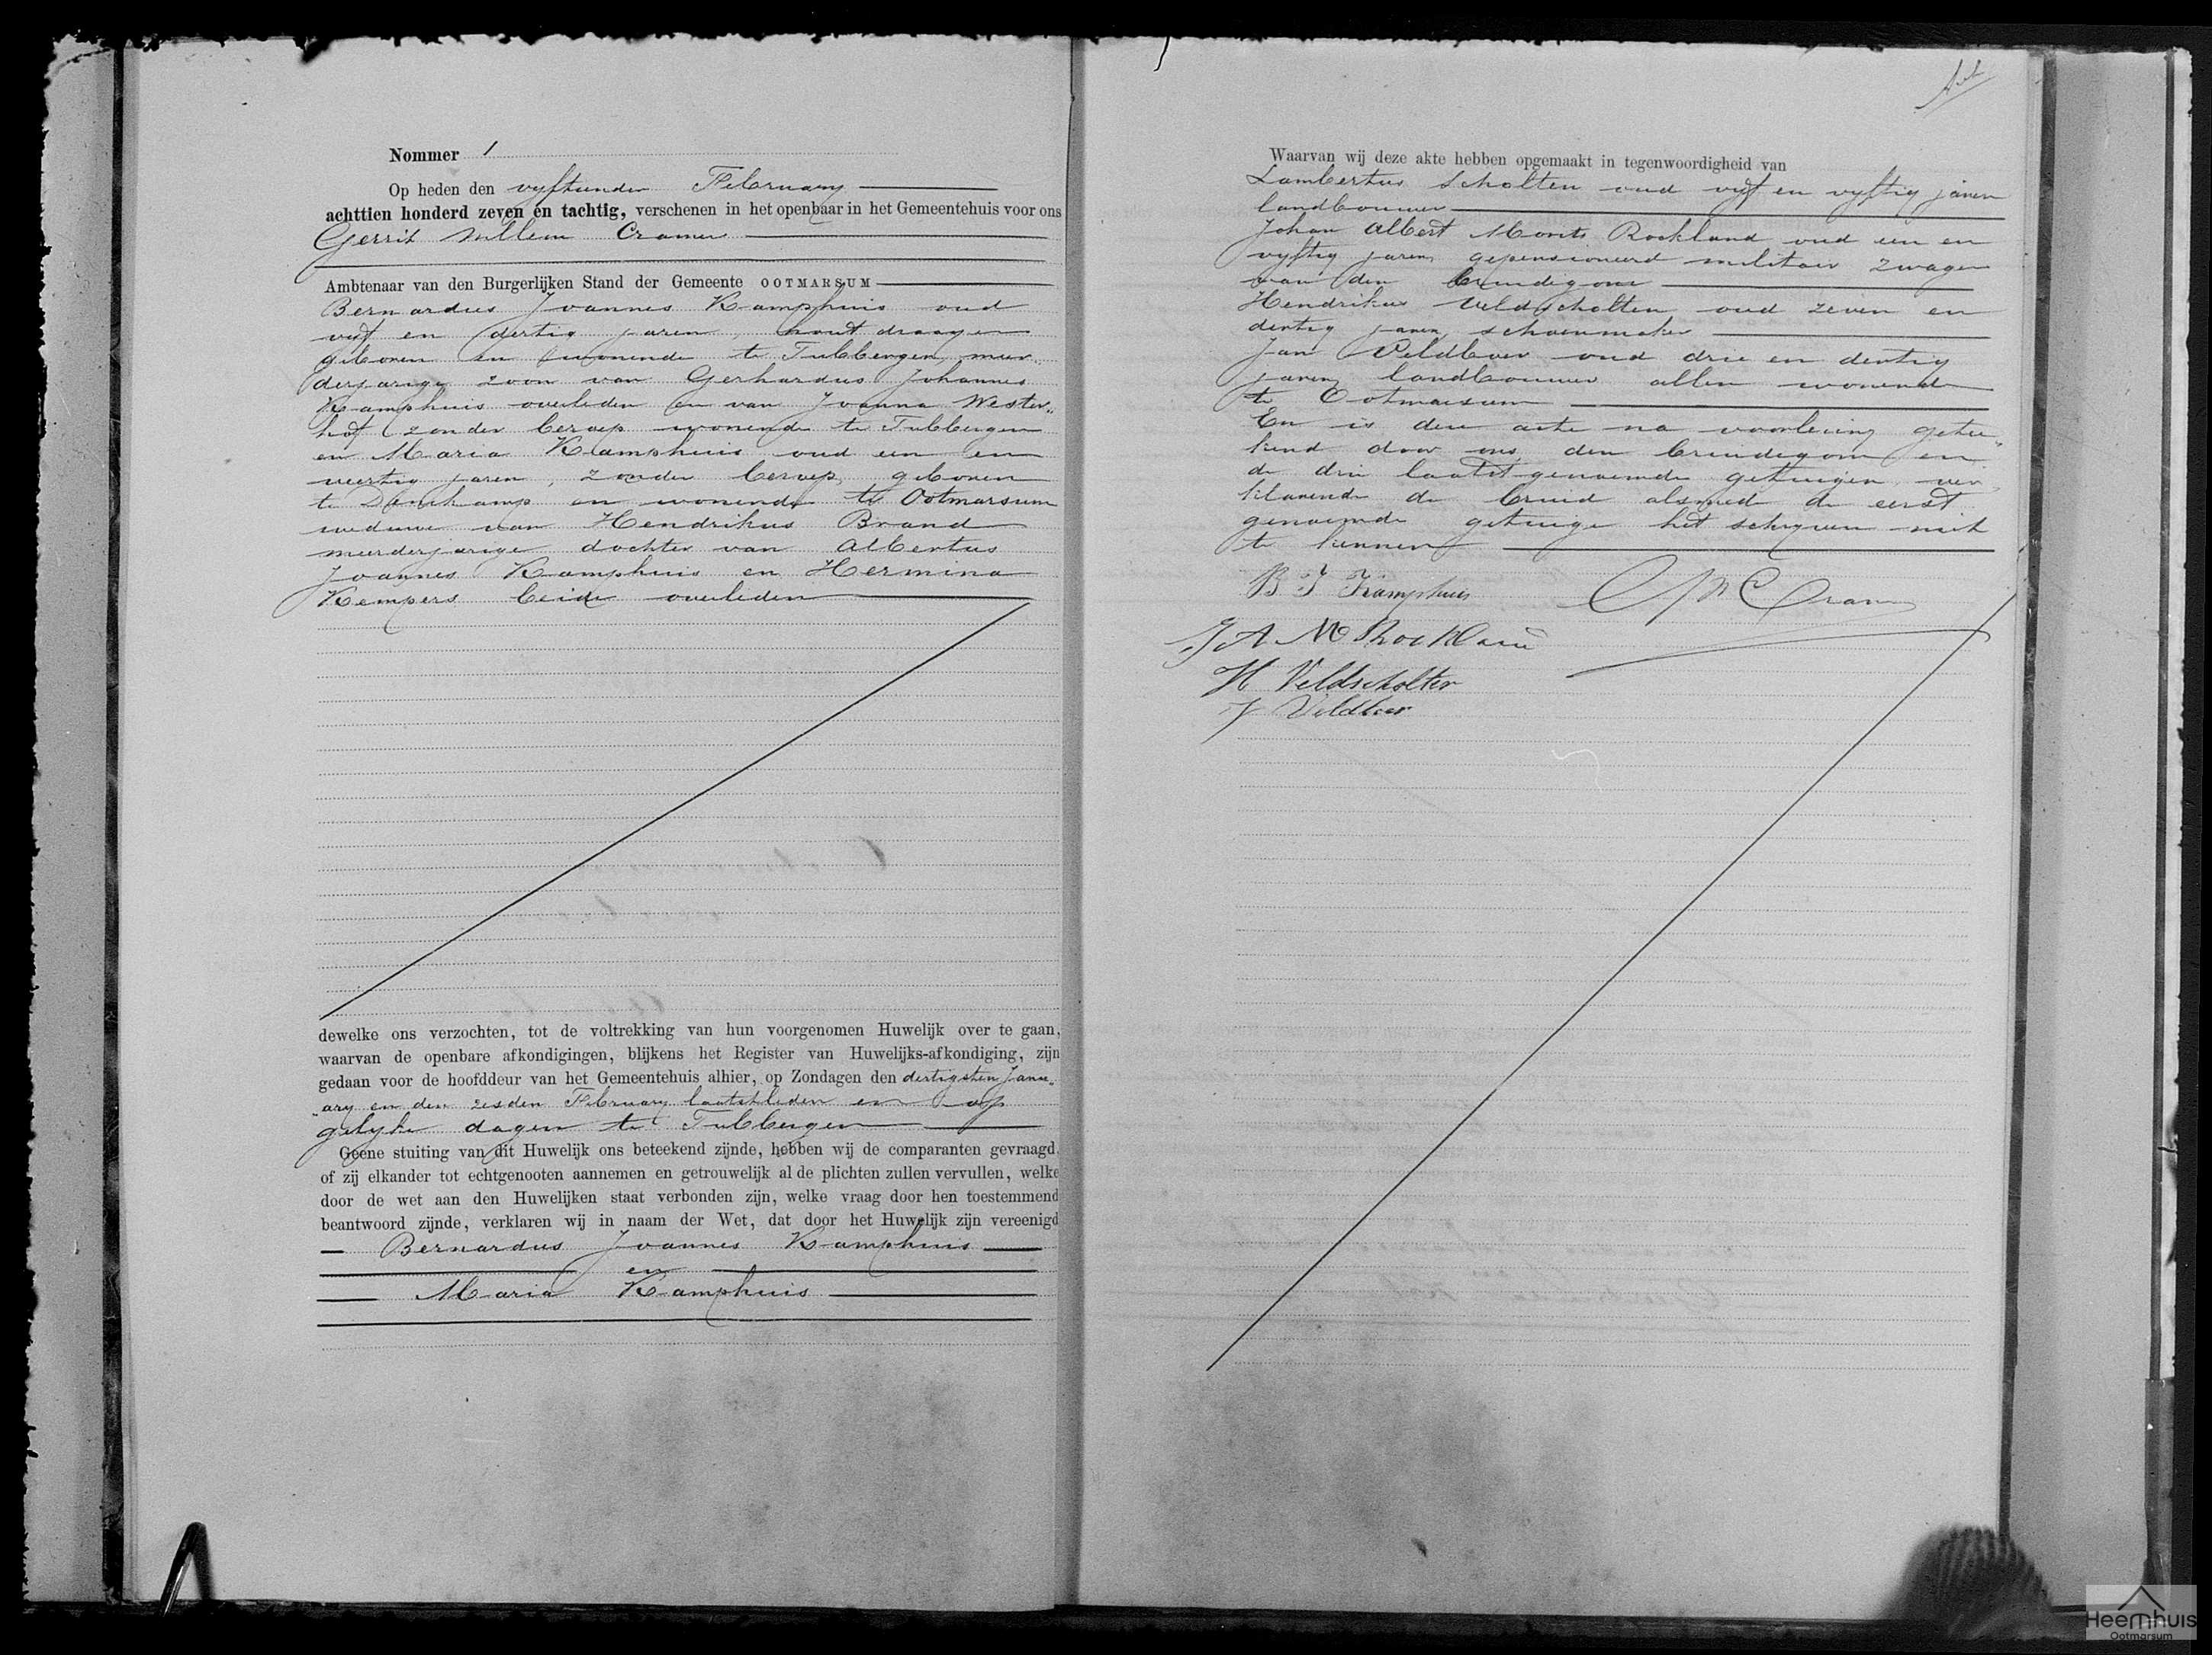 Nommer 1
Op heden den vyftienden February
achttien honderd zeven en tachtig, verschenen in het openbaar in het Gemeentehuis voor ons
Gerrit Willem Cramer
Ambtenaar van den Burgerlijken Stand der Gemeente OOTMARSUM
Bernardus Joannes Kamphuis oud
vyf en dertig jaren, houtdraayer
geboren en wonende te Tubbergen, meer„
derjarige zoon van Gerhardus Johannes
Kamphuis overleden en van Joanna Wester„
hof zonder beroep wonende te Tubbergen
en Maria Kamphuis oud een en
veertig jaren, zonder beroep, geboren
te Denekamp en wonende te Ootmarsum
weduwe van Hendrikus Brand
meerderjarige dochter van Albertus
Joannes Kamphuis en Hermina
Kempers beide overleden
dewelke ons verzochten, tot de voltrekking van hun voorgenomen Huwelijk over te gaan,
waarvan de openbare afkondigingen, blijkens het Register van Huwelijks-afkondiging, zijn
gedaan voor de hoofddeur van het Gemeentehuis alhier, op Zondagen den dertigsten Janu„
„ary en den zesden February laatstleden en op
gelyke dagen te Tubbergen
Geene stuiting van dit Huwelijk ons beteekend zijnde, hebben wij de comparanten gevraagd,
of zij elkander tot echtgenooten aannemen en getrouwelijk al de plichten zullen vervullen, welke
door de wet aan den Huwelijken staat verbonden zijn, welke vraag door hen toestemmend
beantwoord zijnde, verklaren wij in naam der Wet, dat door het Huwelijk zijn vereenigd
Bernardus Joannes Kamphuis
en
Maria Kamphuis
Waarvan wij deze akte hebben opgemaakt in tegenwoordigheid van
Lambertus Scholten oud vyf en vyftig jaren
landbouwer
Johan Albert Morits Rockland oud een en
vyftig jaren, gepensioneerd militair zwager
van den bruidegom
Hendrikus Veldscholten oud zeven en
dertig jaren, schoenmaker
Jan Veldboer oud drie en dertig
jaren, landbouwer allen wonende
te Ootmarsum
En is deze acte na voorlezing getee„
kend door ons, den bruidegom en
de drie laatstgenoemde getuigen ver„
klarende de bruid alsmede de eerst
genoemde getuige het schryven niet
te kennen
B J Kamphuis
GWCramer
J A M Rockland
H Veldscholten
J Veldboer
Heemhuis
Ootmarsum